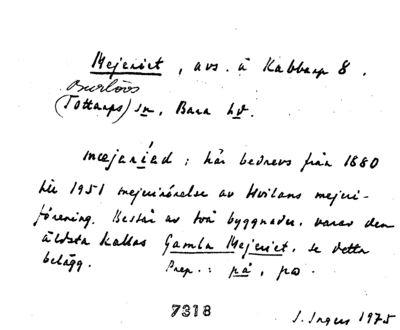 Mejeriet, avs. å Kabbarp 8.
Burlövs
(Tottarps) sn, Bara hd.
mæjəríəd; här bedrevs från 1880
till 1951 mejerirörelse av Hvilans mejeri-
förening. Består av två byggnader, varav den
äldsta kallas Gamla Mejeriet, se detta
belägg. Prep.: på, po.
7318
S. Ingers 1975